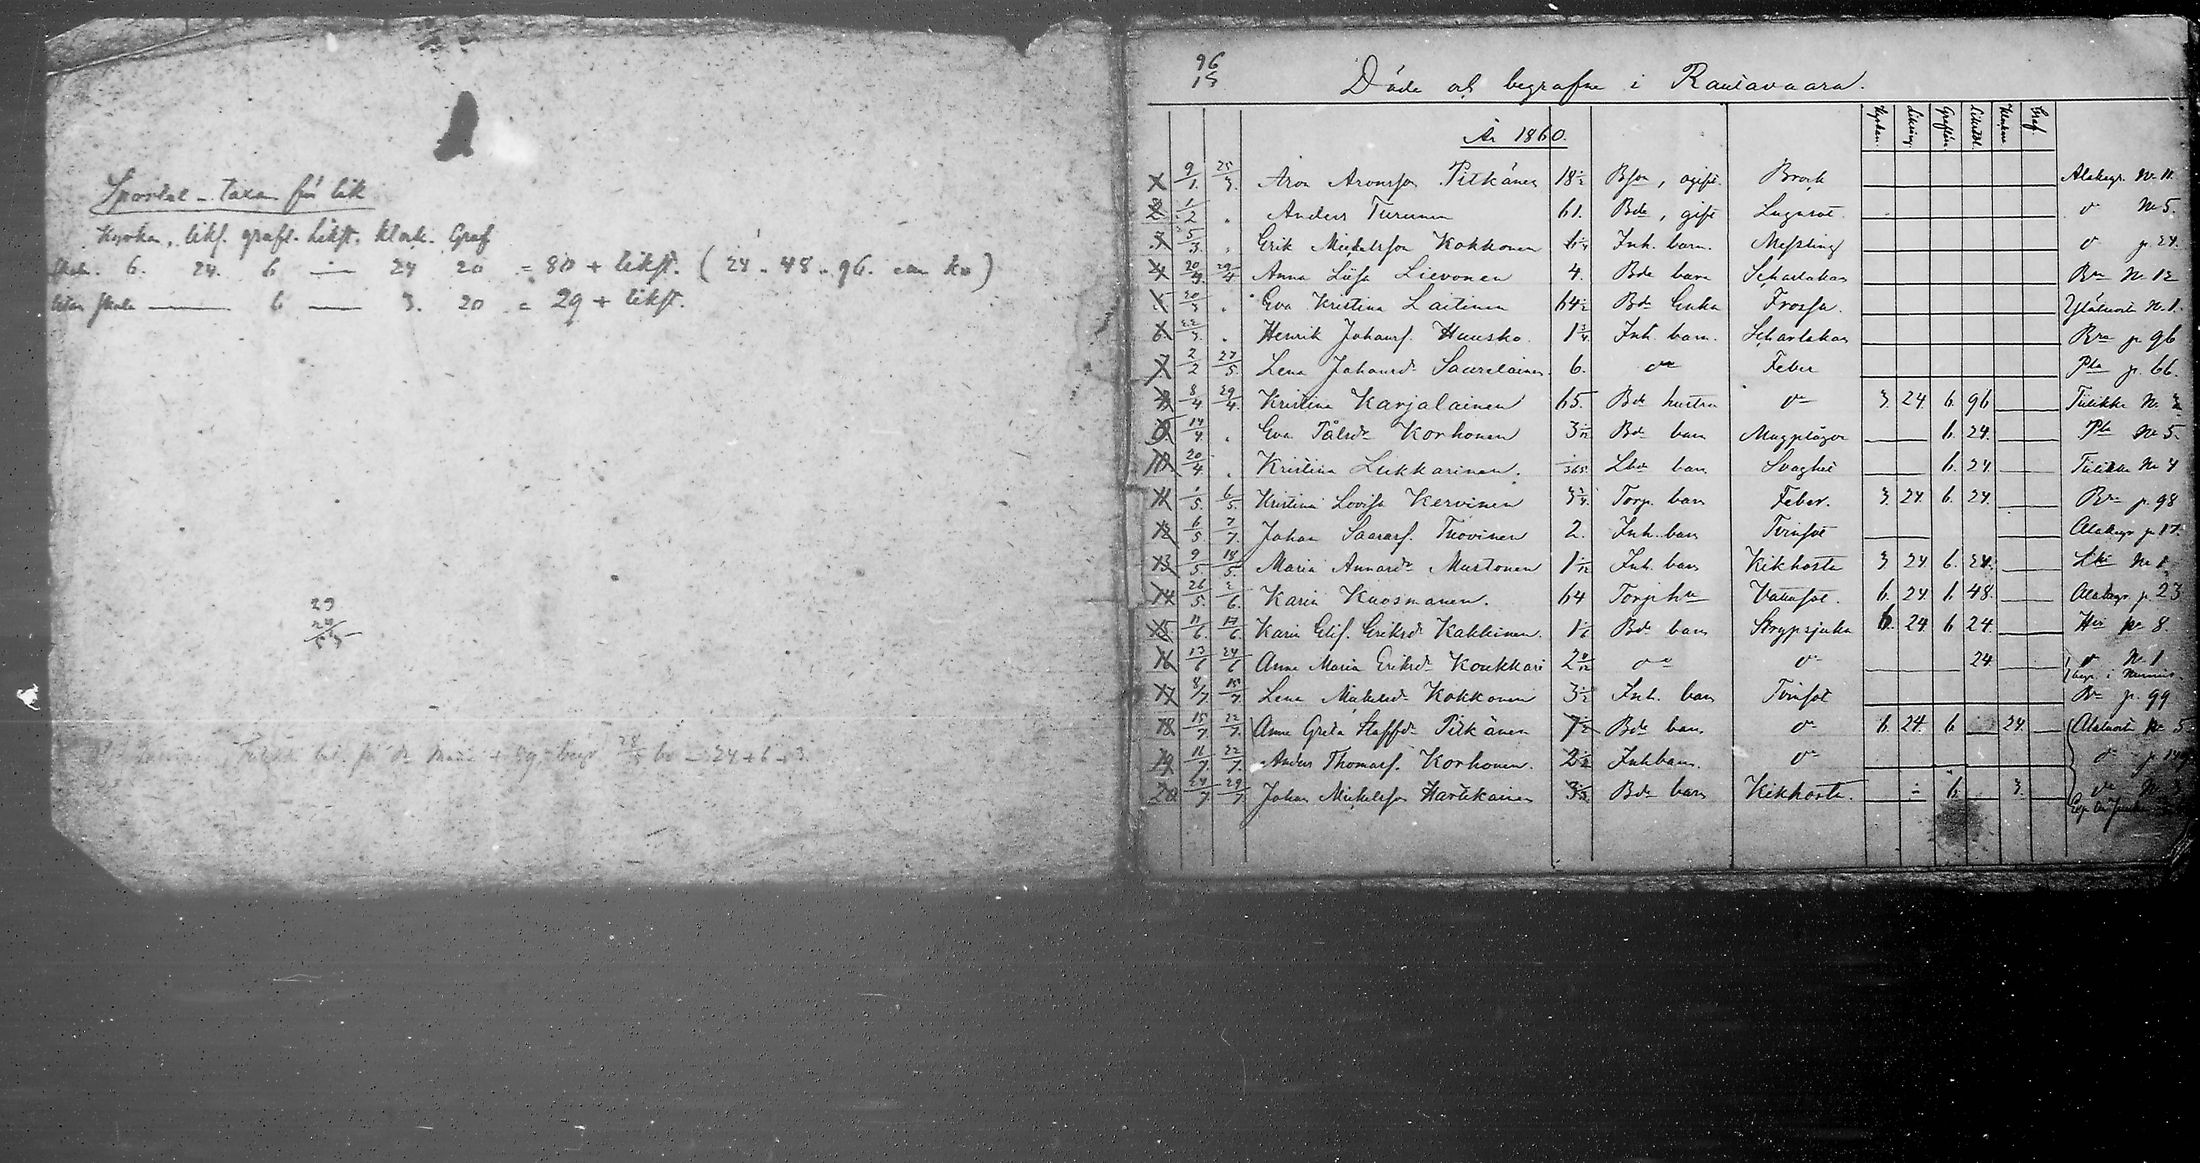 Sportel-Taxa för lik
Kyrkan, liks. grafl. Likst. klock. Graf
6. 24. 6 — 24 20 = 80 + likst. (24 - 48 - 96. en ko)
utan skala — 6 — 3. 20 = 29 + likst.
29
24
53
96
15
Döde och begrafne i Rautavaara.
År 1860.
Kyrkan. Graflön Graf.
9/1. 25/3. Aron Aronsson Pitkänen 18 1/2 Bson, ogift. Brock Alakeyr. No 11.
2 1/2 " Anders Turunen 61. Bde, gift Lungsot. d° No 5.
5/3. " Erik Michelsson Kokkonen Inh. barn. Messling d° p. 24.
4 20/3. 29/4 Anna Lisa Lievonen 4. Bde barn Scharlakan Bra No 12
5 20/3 " Eva Kristina Laitinen 64 1/2 Bde Enka Frossa. No 1.
6 22/3. " Henrik Johanss. Huusko. 1 3/4 Inh. barn. Scharlakan Bra p. 96
7 2/2 27/5. Lena Johansdr Saarelainen 6. d° Feber Pla p. 66.
8 8/4 29/4. Kristina Karjalainen 65. Bde hustru d° 3. 24. 6. 96 Tiilikka No
9 14/4. " Eva Pålsdr Korhonen 3/12 Bde barn Magplågor 6. 24. Pla No 5.
10 20/4 " Kristina Lukkarinen. 1/365 Lbo barn Svaghet 6. 24. Tiilikka No 4
11 1/5. 6/5. Kristina Lovisa Kervinen 3 3/4. Torp. barn Feber. 3. 24. 6. 24. Bra p. 98
12 6/5 7/7. Johan Saaras. Tuovinen 2. Inh. barn Tvinsot Alakeyr p. 17.
13 9/5. 18/5. Maria Annasdr Mustonen 1/12 Inh. barn Kikhosta 3 24 6. 24. No 1
14 26/5. 2/6. Karin Kuosmanen. 64 Torp. h. Vattusot. 6. 24. 6 48. Alakeyr. p. 23
15 11/6. 17/6 Karin Elis. Eriksdr Kakkinen. 1/6 Bde barn Strypsjuka 6. 24. 6 24. 8.
16 13/6 24/6 Anna Maria Eriksdr Konkkari 2 Bde d° 24. d° No 1
begr. i Nurmis
17 8/7 15/7 Lena Michelsdr Kokkonen 3 1/2 Inh. barn Tvinsot Bra p. 99
18 15/7 22/7. Anna Greta Staffsdr Pitkänen 7 1/2 Bde barn d° 6. 24. 6 24. Alaluosta No 5
19 16/7. 22/7. Anders Thomass. Korhonen. 2 1/2 Inh barn. d° d° p. 149
20 24/7 29/7 Johan Michelsson Hartikainen Bde barn Kikhosta. 6. 3. d° No 3